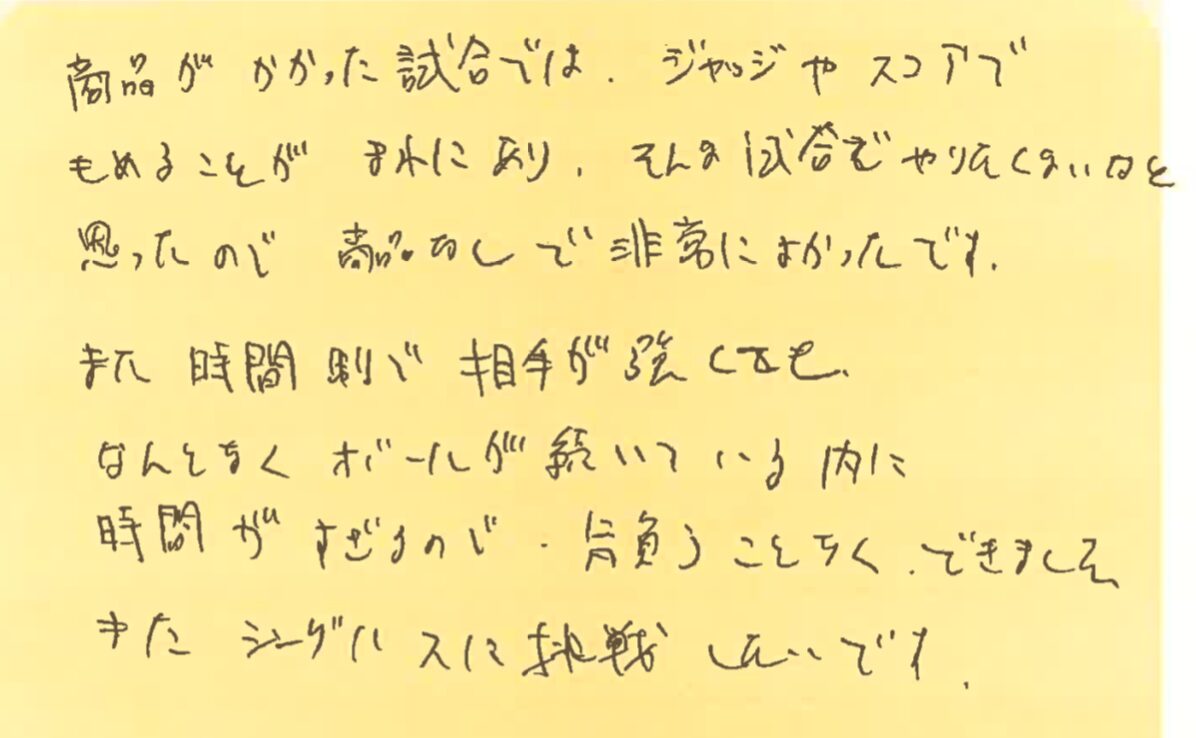 商品が かかった試合では、ジャッジや スコアで
もめることが まれにあり、そんな試合で やりたくないなと
思ったので 商品なしで 非常によかったです。
また 時間制で 相手が強くても、
なんとなく ボールが続いている内に
時間が すぎるので、背負うことなく、できました
また シングルスに挑戦したいです。